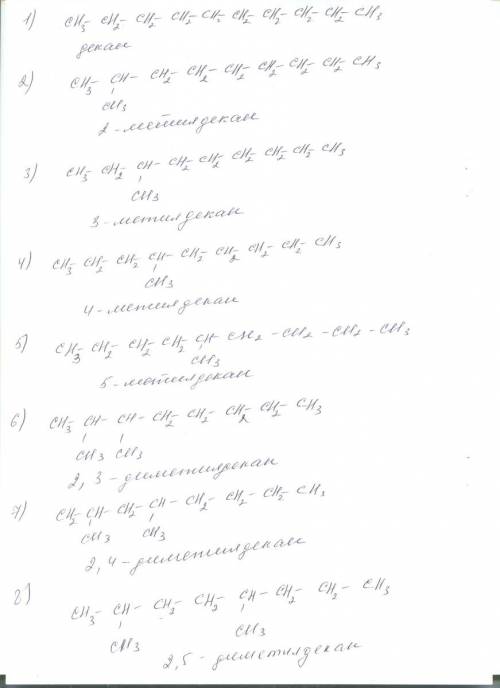 1) CH3- CH2- CH2- CH2- CH2- CH2- CH2- CH2- CH2- CH3
декан
2) CH3- CH- CH2- CH2- CH2- CH2- CH2- CH2- CH3
CH3
2-метилдекан
3) CH3- CH2- CH- CH2- CH2- CH2- CH2- CH2- CH3
CH3
3-метилдекан
4) CH3- CH2- CH2- CH- CH2- CH2- CH2- CH2- CH3
CH3
4-метилдекан
5) CH3- CH2- CH2- CH2- CH- CH2- CH2- CH2- CH3
CH3
5-метилдекан
6) CH3- CH- CH- CH2- CH2- CH2- CH2- CH3
CH3 CH3
2,3-диметилдекан
7) CH2- CH- CH2- CH- CH2- CH2- CH2- CH3
CH3 CH3
2,4-диметилдекан
8) CH3- CH- CH2- CH2- CH- CH2- CH2- CH3
CH3 CH3
2,5-диметилдекан